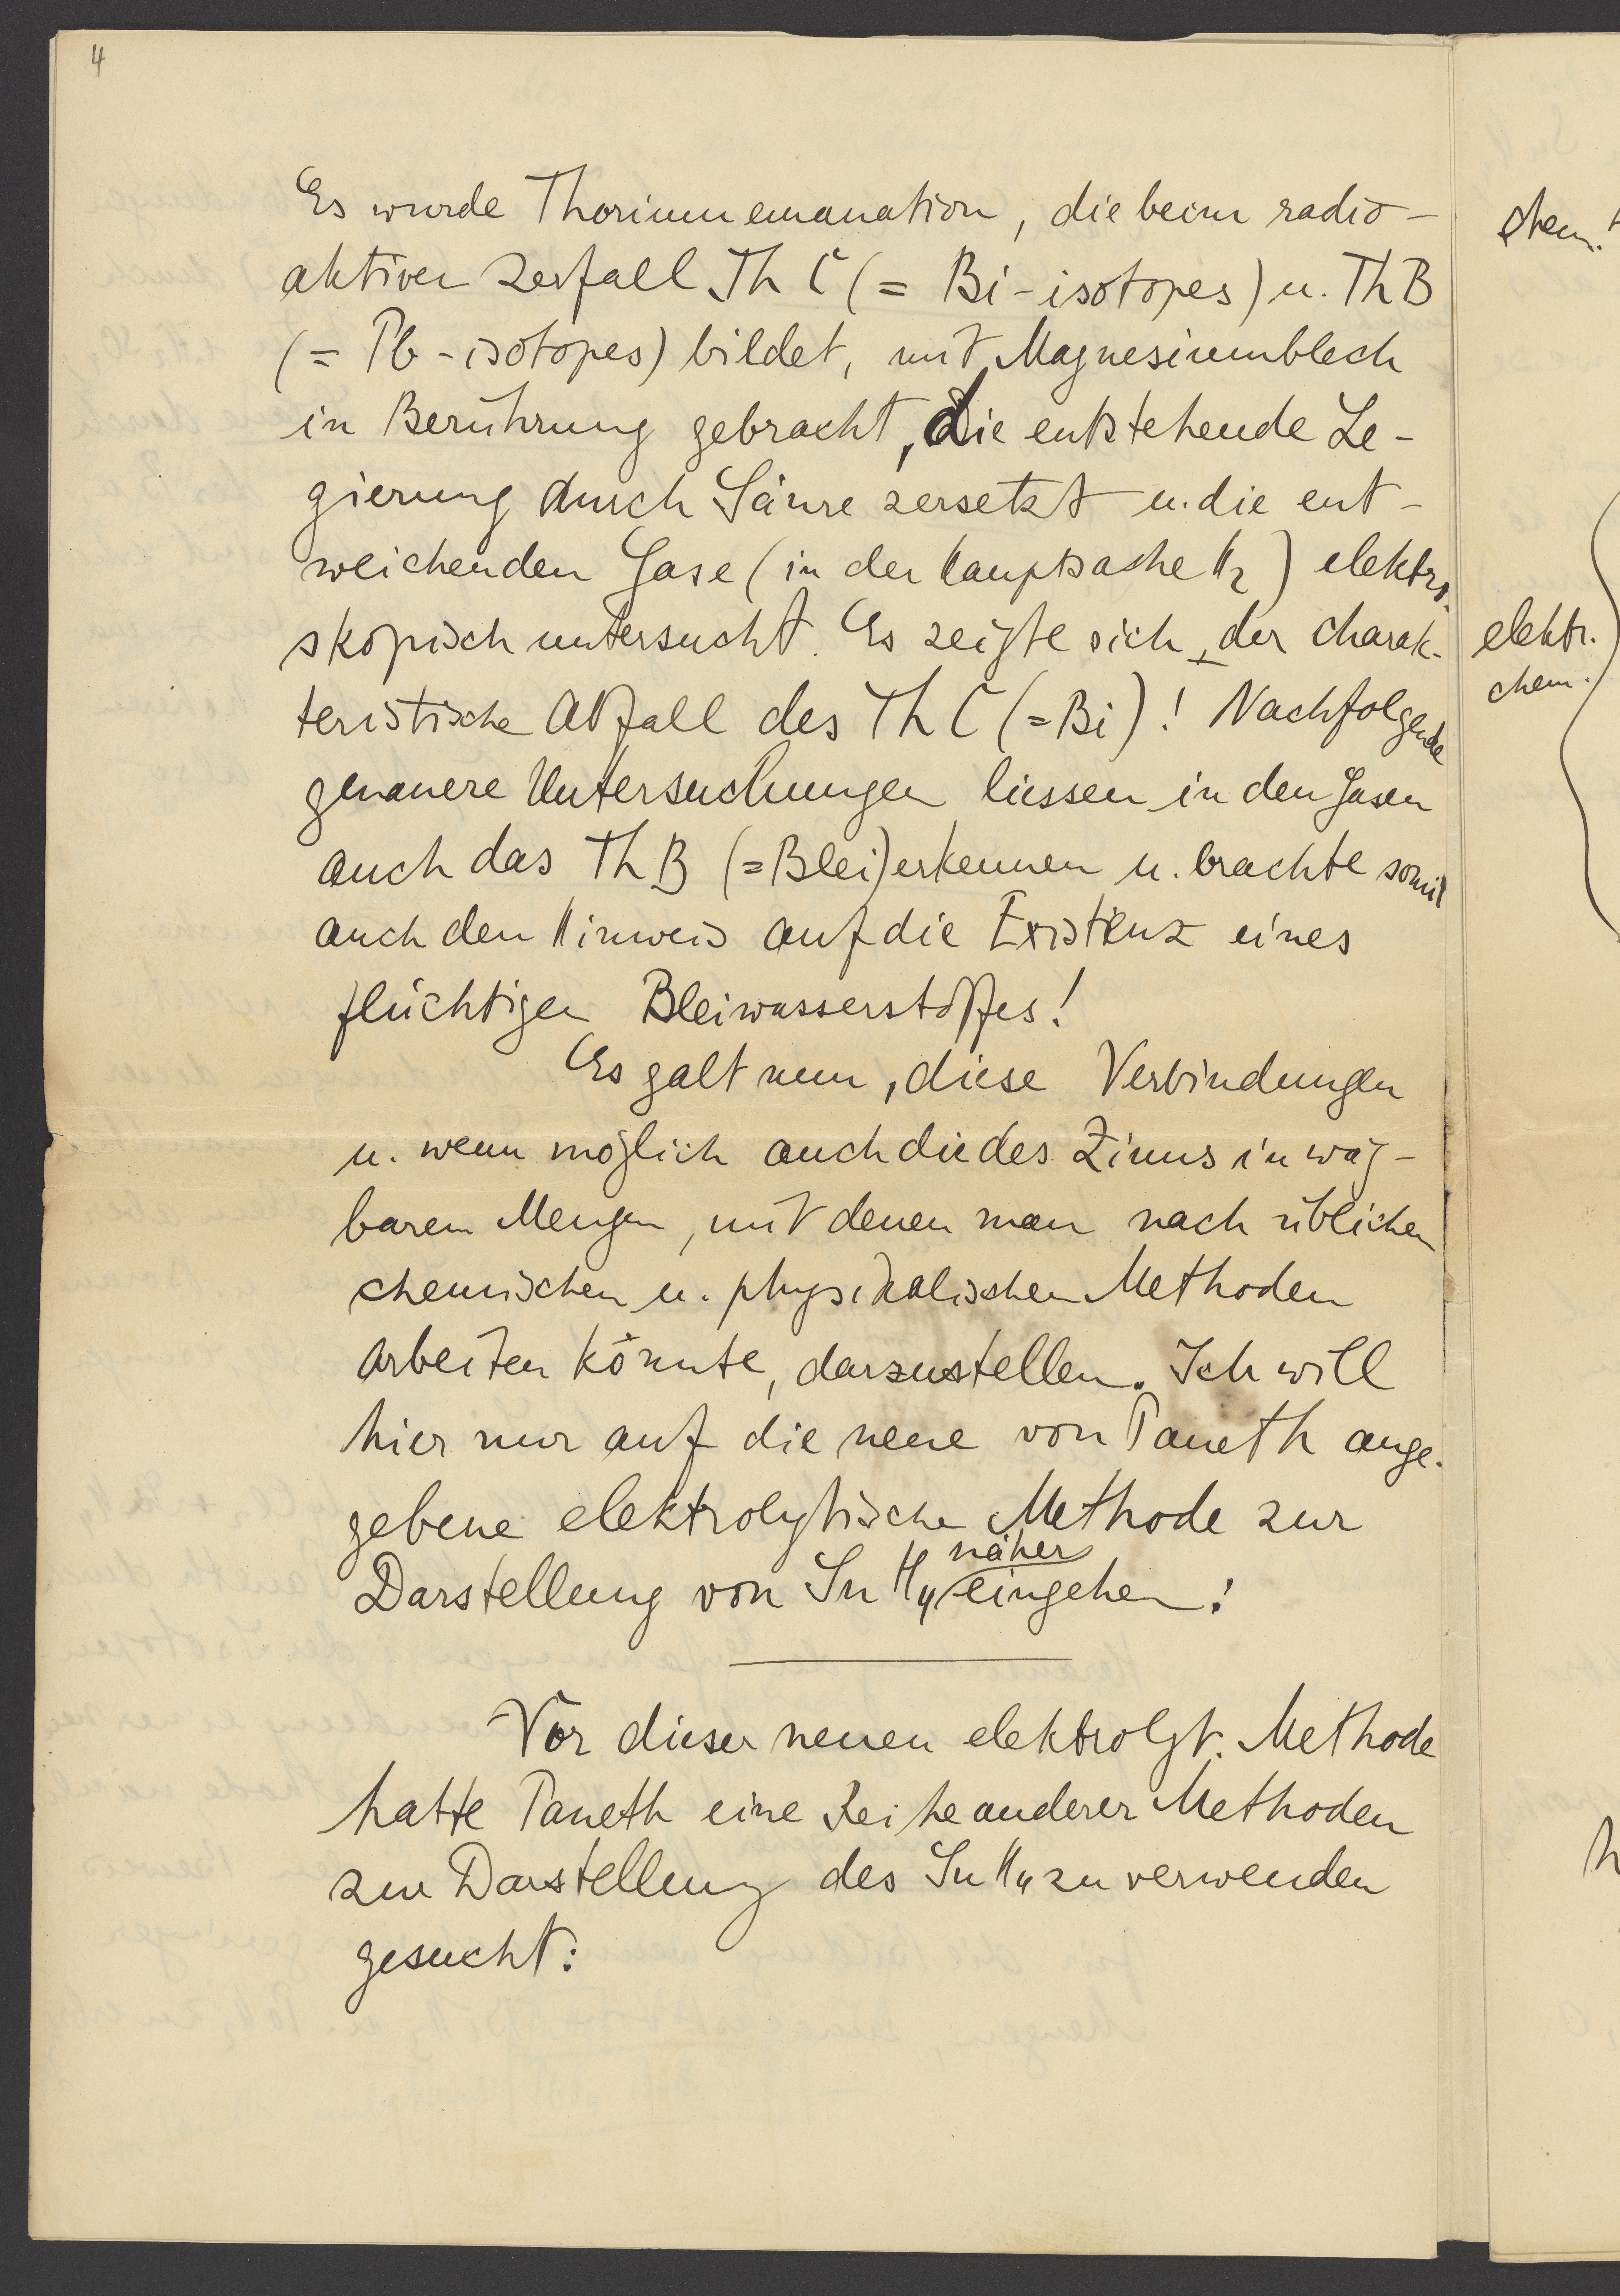 4
Es wurde Thoriumemanation, die beim radio-
aktiven Zerfall Th C (= Bi-isotopes) u. Th B
(= Pb-isotopes) bildet, mit Magnesiumblech
in Berührung gebracht, die entstehende Le-
gierung durch Säure zersetzt u. die ent-
weichenden Gase (in der Hauptsache H2) elektro-
skopisch untersucht. Es zeigte sich der charak-
teristische Abfall des Th C (=Bi)! Nachfolgende
genauere Untersuchungen liessen in den Gasen
auch das Th B (=Blei) erkennen u. brachte somit
auch den Hinweis auf die Existenz eines
flüchtigen Bleiwasserstoffes!
Es galt nun, diese Verbindungen
u. wenn möglich auch die des Zinns in wäg-
baren Mengen, mit denen man nach üblichen
chemischen u. physikalischen Methoden
arbeiten könnte, darzustellen. Ich will
hier nur auf die neue von Paneth ange-
gebene elektrolytische Methode zur
näher
Darstellung von SnH4 eingehen!
Vor dieser neuen elektrolyt. Methode
hatte Paneth eine Reihe anderer Methoden
zur Darstellung des SnH4 zu verwenden
gesucht:
chem.
elektr.
chem.